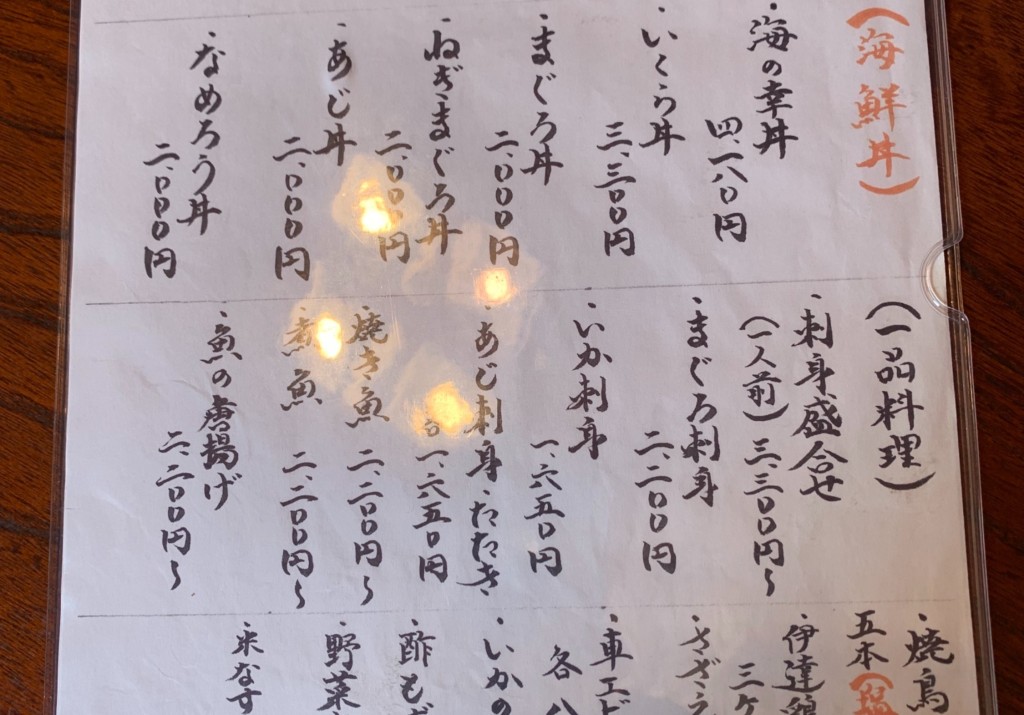 (海鮮丼)
・海の幸丼
四、一八〇円
・いくら丼
三、三〇〇円
・まぐろ丼
二、〇〇〇円
・ねぎまぐろ丼
二、〇〇〇円
・あじ丼
二、〇〇〇円
・なめろう丼
二、〇〇〇円
(一品料理)
・刺身盛合せ
(一人前)三、三〇〇円〜
・まぐろ刺身
二、二〇〇円
・いか刺身
一、六五〇円
・あじ刺身・たたき
一、六五〇円
焼き魚 二、二〇〇円〜
煮魚 二、二〇〇円〜
・魚の唐揚げ
二、二〇〇円〜
・焼鳥
五本
・伊達
三ケ
・さざえ
・車エビ
各八
・いかの
・酢もず
・野菜
・米なす